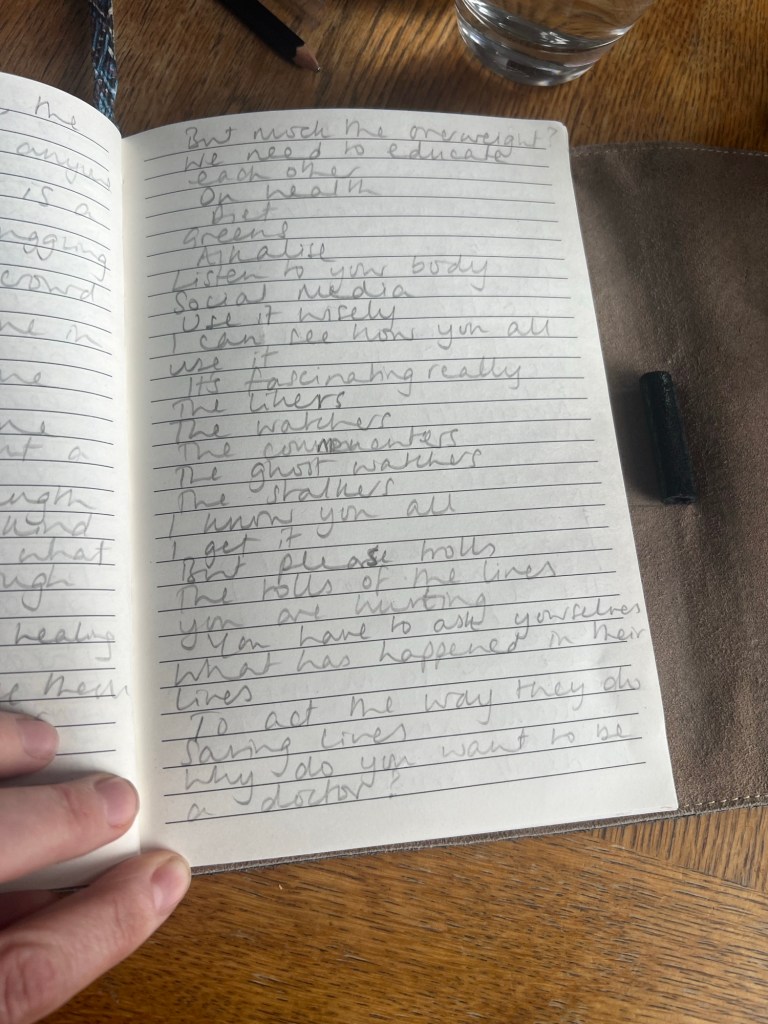 the
anyone
is a
gging
crowd
me in
me
me
nt a
ength
kind
what
ugh
healing
e them
But mock the overweight?
We need to educate
each other
On health
Diet
Greens
Alkalise
Listen to your body
Social Media
Use it wisely
I can see how you all
use it
It's fascinating really
The likers
The watchers
The commenters
The ghost watchers
The stalkers
I know you all
I get it
But please trolls
The rolls of the lines
you are hurting
You have to ask yourselves
What has happened in their
lives
To act the way they do
Saving lives
Why do you want to be
a doctor?